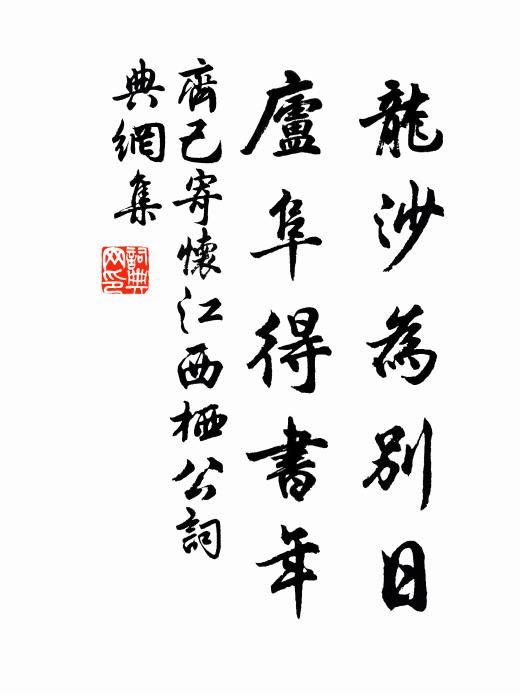 龍沙為別日
廬阜得書年
齊己寄懷江西栖公詞
典網集
詞典
网印